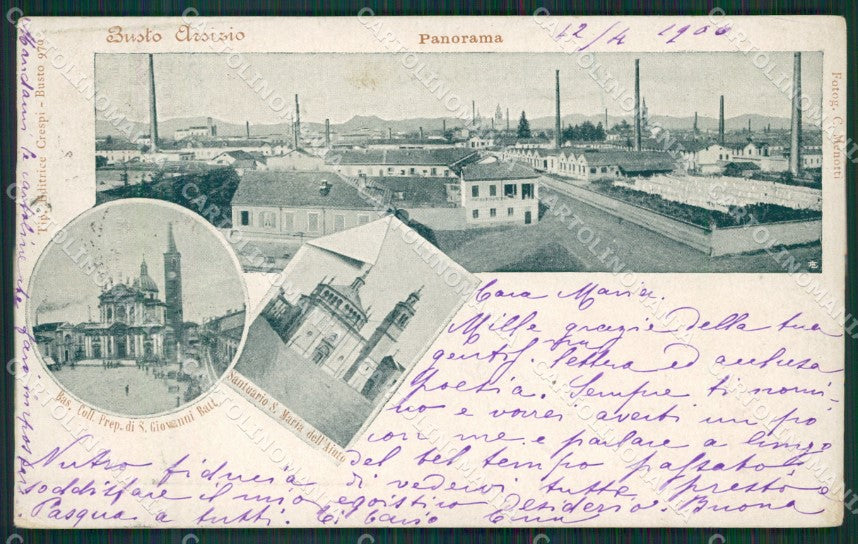 Busto Arsizio
Panorama
12/4 1900
Fotog. C. Monetti
Tip. Editrice Crespi - Busto 979
Bas. Coll. Prep. di S. Giovanni Batt.
Santuario S. Maria dell'Aiuto
Cara Maria.
Mille grazie della tua
gentil. lettera ed
poesia. Sempre ti nomi-
no e vorrei averti un po
con me e parlare a lungo
del bel tempo passato.
Nutro fiducia di vedervi tutte presto a
soddisfare il mio egoistico desiderio. Buona
Pasqua a tutti. Ti bacio
Mandami le cartoline che
CARTOLINOMANIA